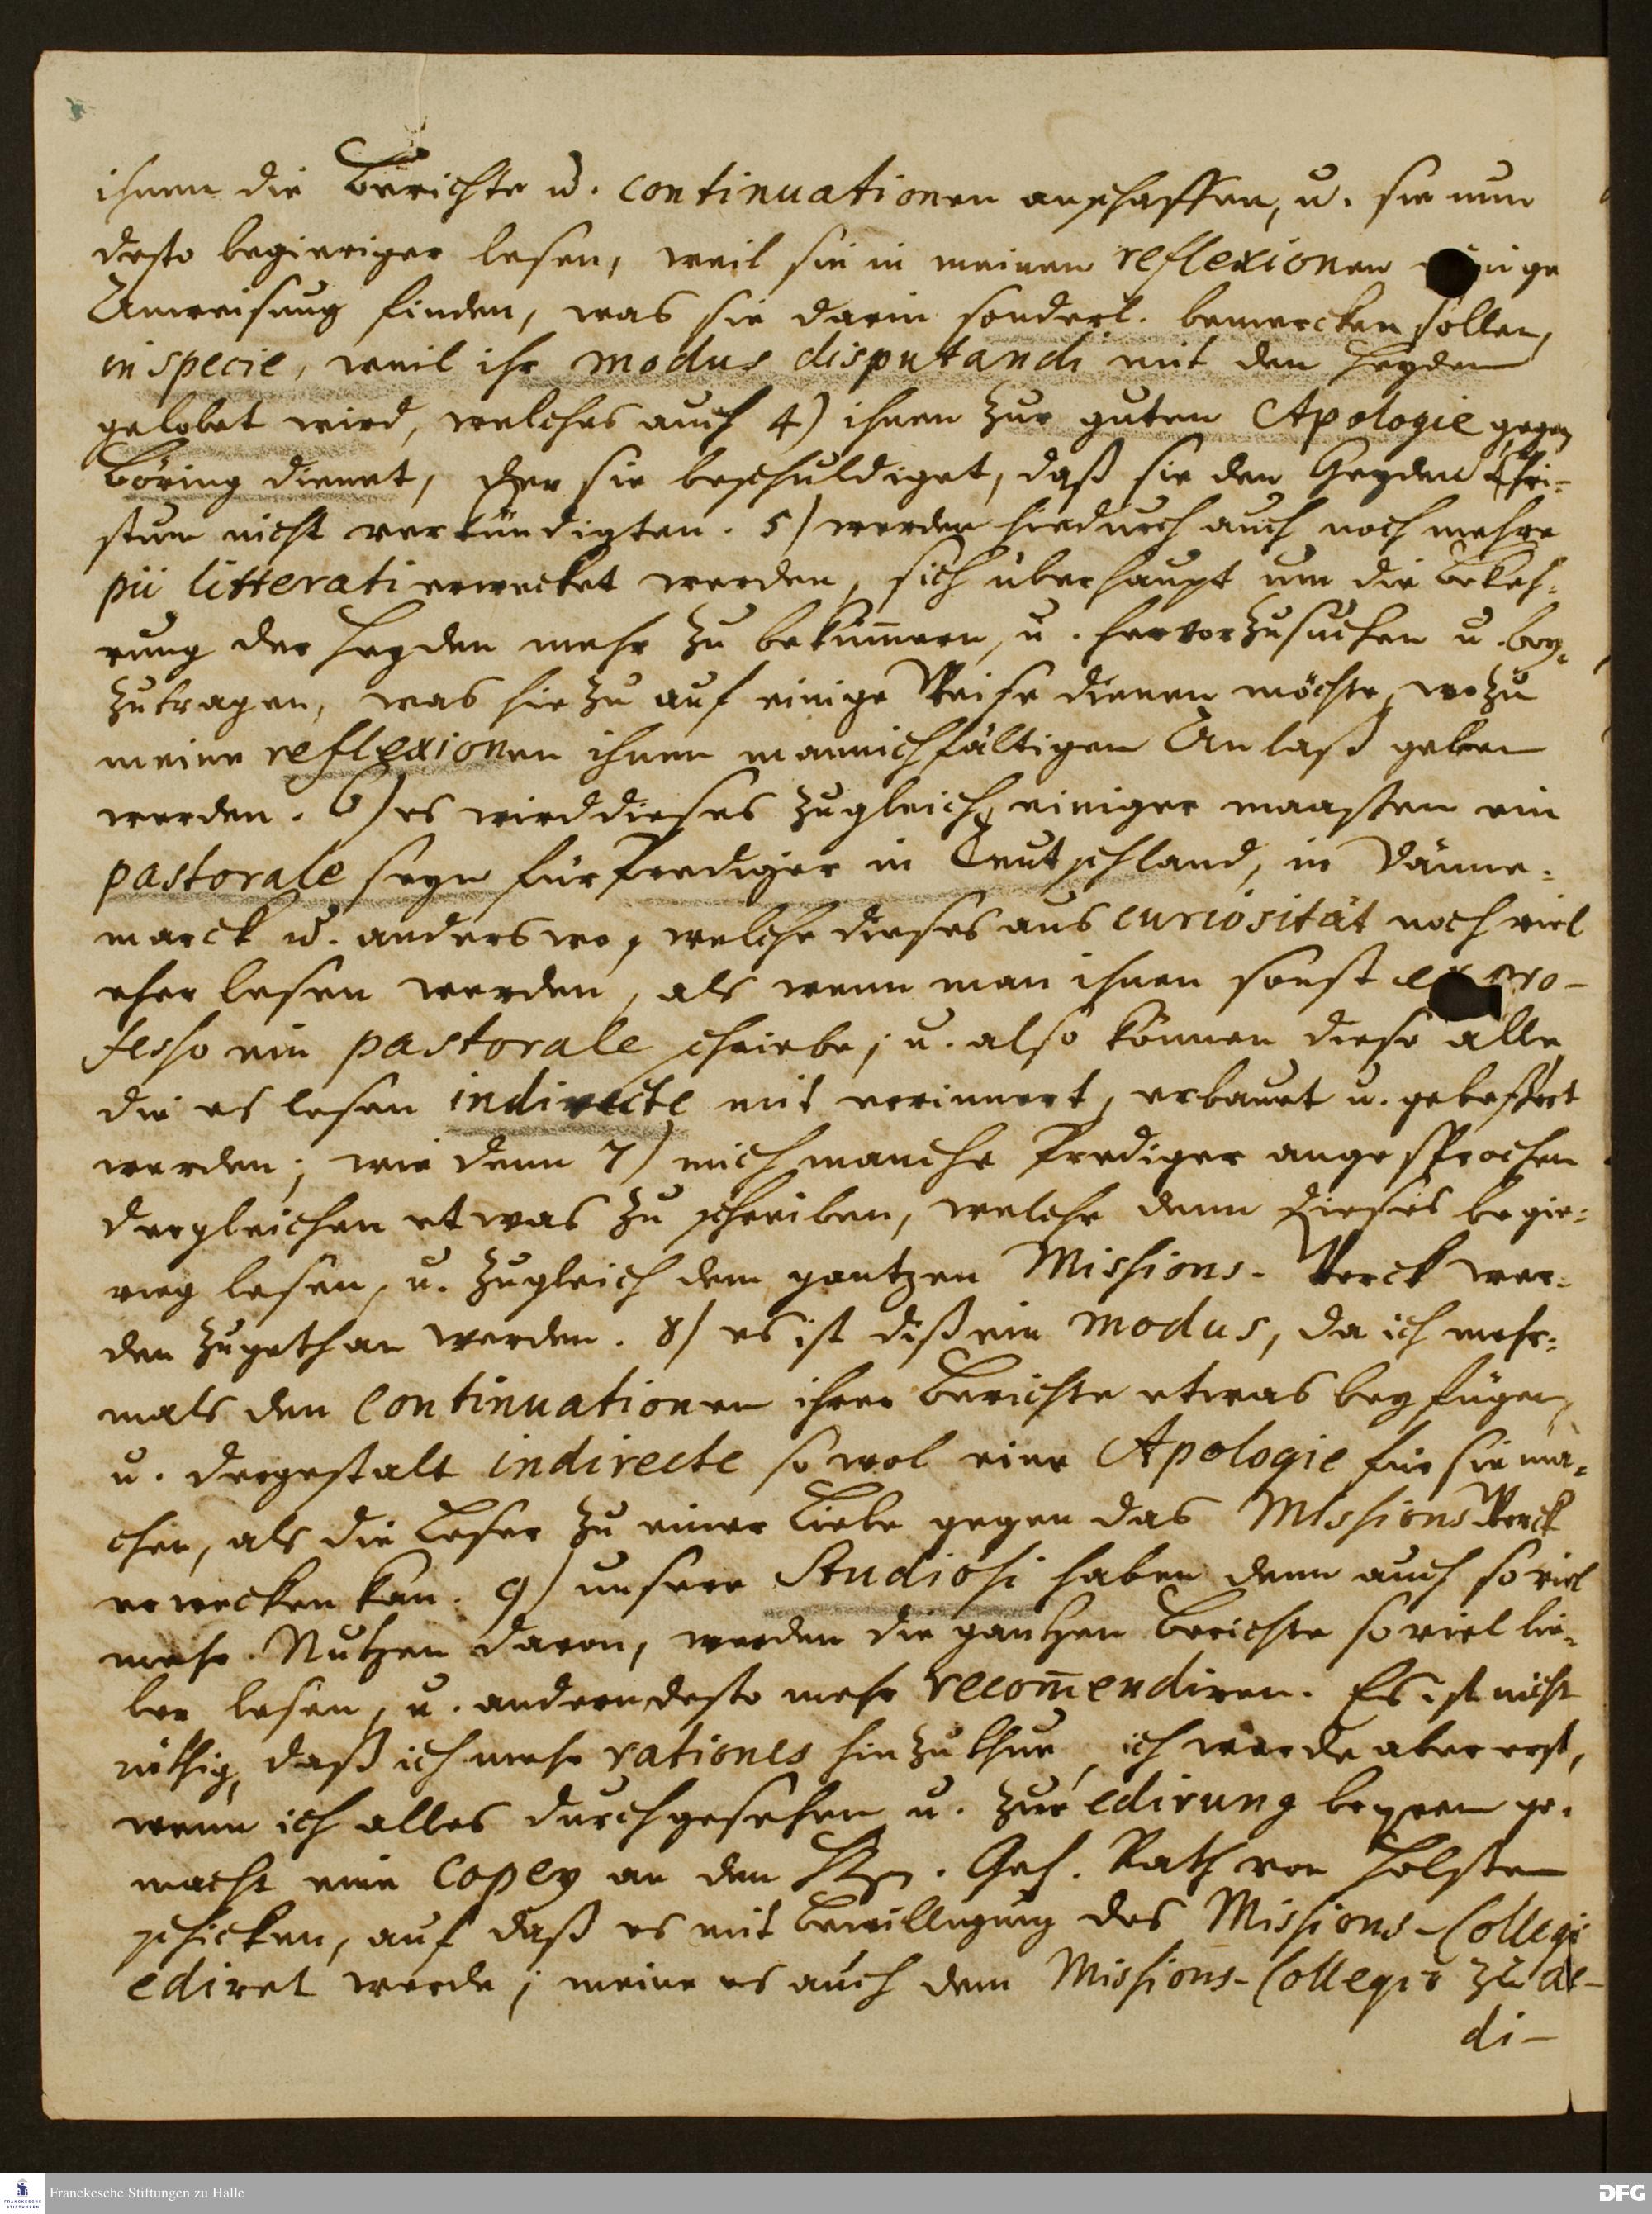 ihnen die Berichte u. continuationen anschaffen, u. sie nun
desto begieriger lesen, weil sie in meinen reflexionen einige
Anweisung finden, was sie darin sonderl. bemercken sollen,
in specie, weil ihr modus disputandi mit den Heyden
gelobet wird, welches auch 4) ihnen zur guten Apologie gegen
Böving dienet, der sie beschuldiget, daß sie den Heyden Chri-
stum nicht verkündigten. 5) werden hiedurch auch noch mehre
pii litterati erwecket werden, sich überhaupt um die Bekeh-
rung der Heyden mehr zu bekümern, u. hervorzusuchen u. bey-
zutragen, was hiezu auf einige Weise dienen möchte, wozu
meine reflexionen ihnen mannichfältigen Anlaß geben
werden. 6) es wird dieses zugleich einiger maassen ein
pastorale seyn für Prediger in Teutschland, in Dänne-
marck u. anderswo, welche dieses aus curiosität noch viel
eher lesen werden, als wenn man ihnen sonst ex pro-
fesso ein pastorale schriebe; u. also können diese alle
die es lesen indirecte mit erinnert, erbauet u. gebessert
werden; wie denn 7) mich manche Prediger angesprochen
dergleichen etwas zu schreiben, welche denn dieses begie-
rig lesen, u. zugleich dem gantzen Missions-Werck wer-
den zugethan werden. 8) es ist diß ein modus, da ich mehr-
mals den Continuationen ihrer Berichte etwas beyfügen,
u. dergestalt indirecte so wol eine Apologie für sie ma-
chen, als die Leser zu einer Liebe gegen das Missions Werck
erwecken kan. 9) unsere Studiosi haben denn auch so viel
mehr Nutzen davon, werden die gantzen Berichte so viel lie-
ber lesen, u. andern desto mehr recom̄endiren. Es ist nicht
nöthig, daß ich mehr rationes hinzu thue, ich werde aber erst,
wenn ich alles durchgesehen u. zur edirung bequem ge-
macht eine Copey an den Hrn. Geh. Rath von Holsten
schicken, auf daß es mit Bewilligung des Missions-Collegii
ediret werde; meine es auch dem Missions-Collegio zu de-
di-
Franckesche Stiftungen zu Halle
DFG